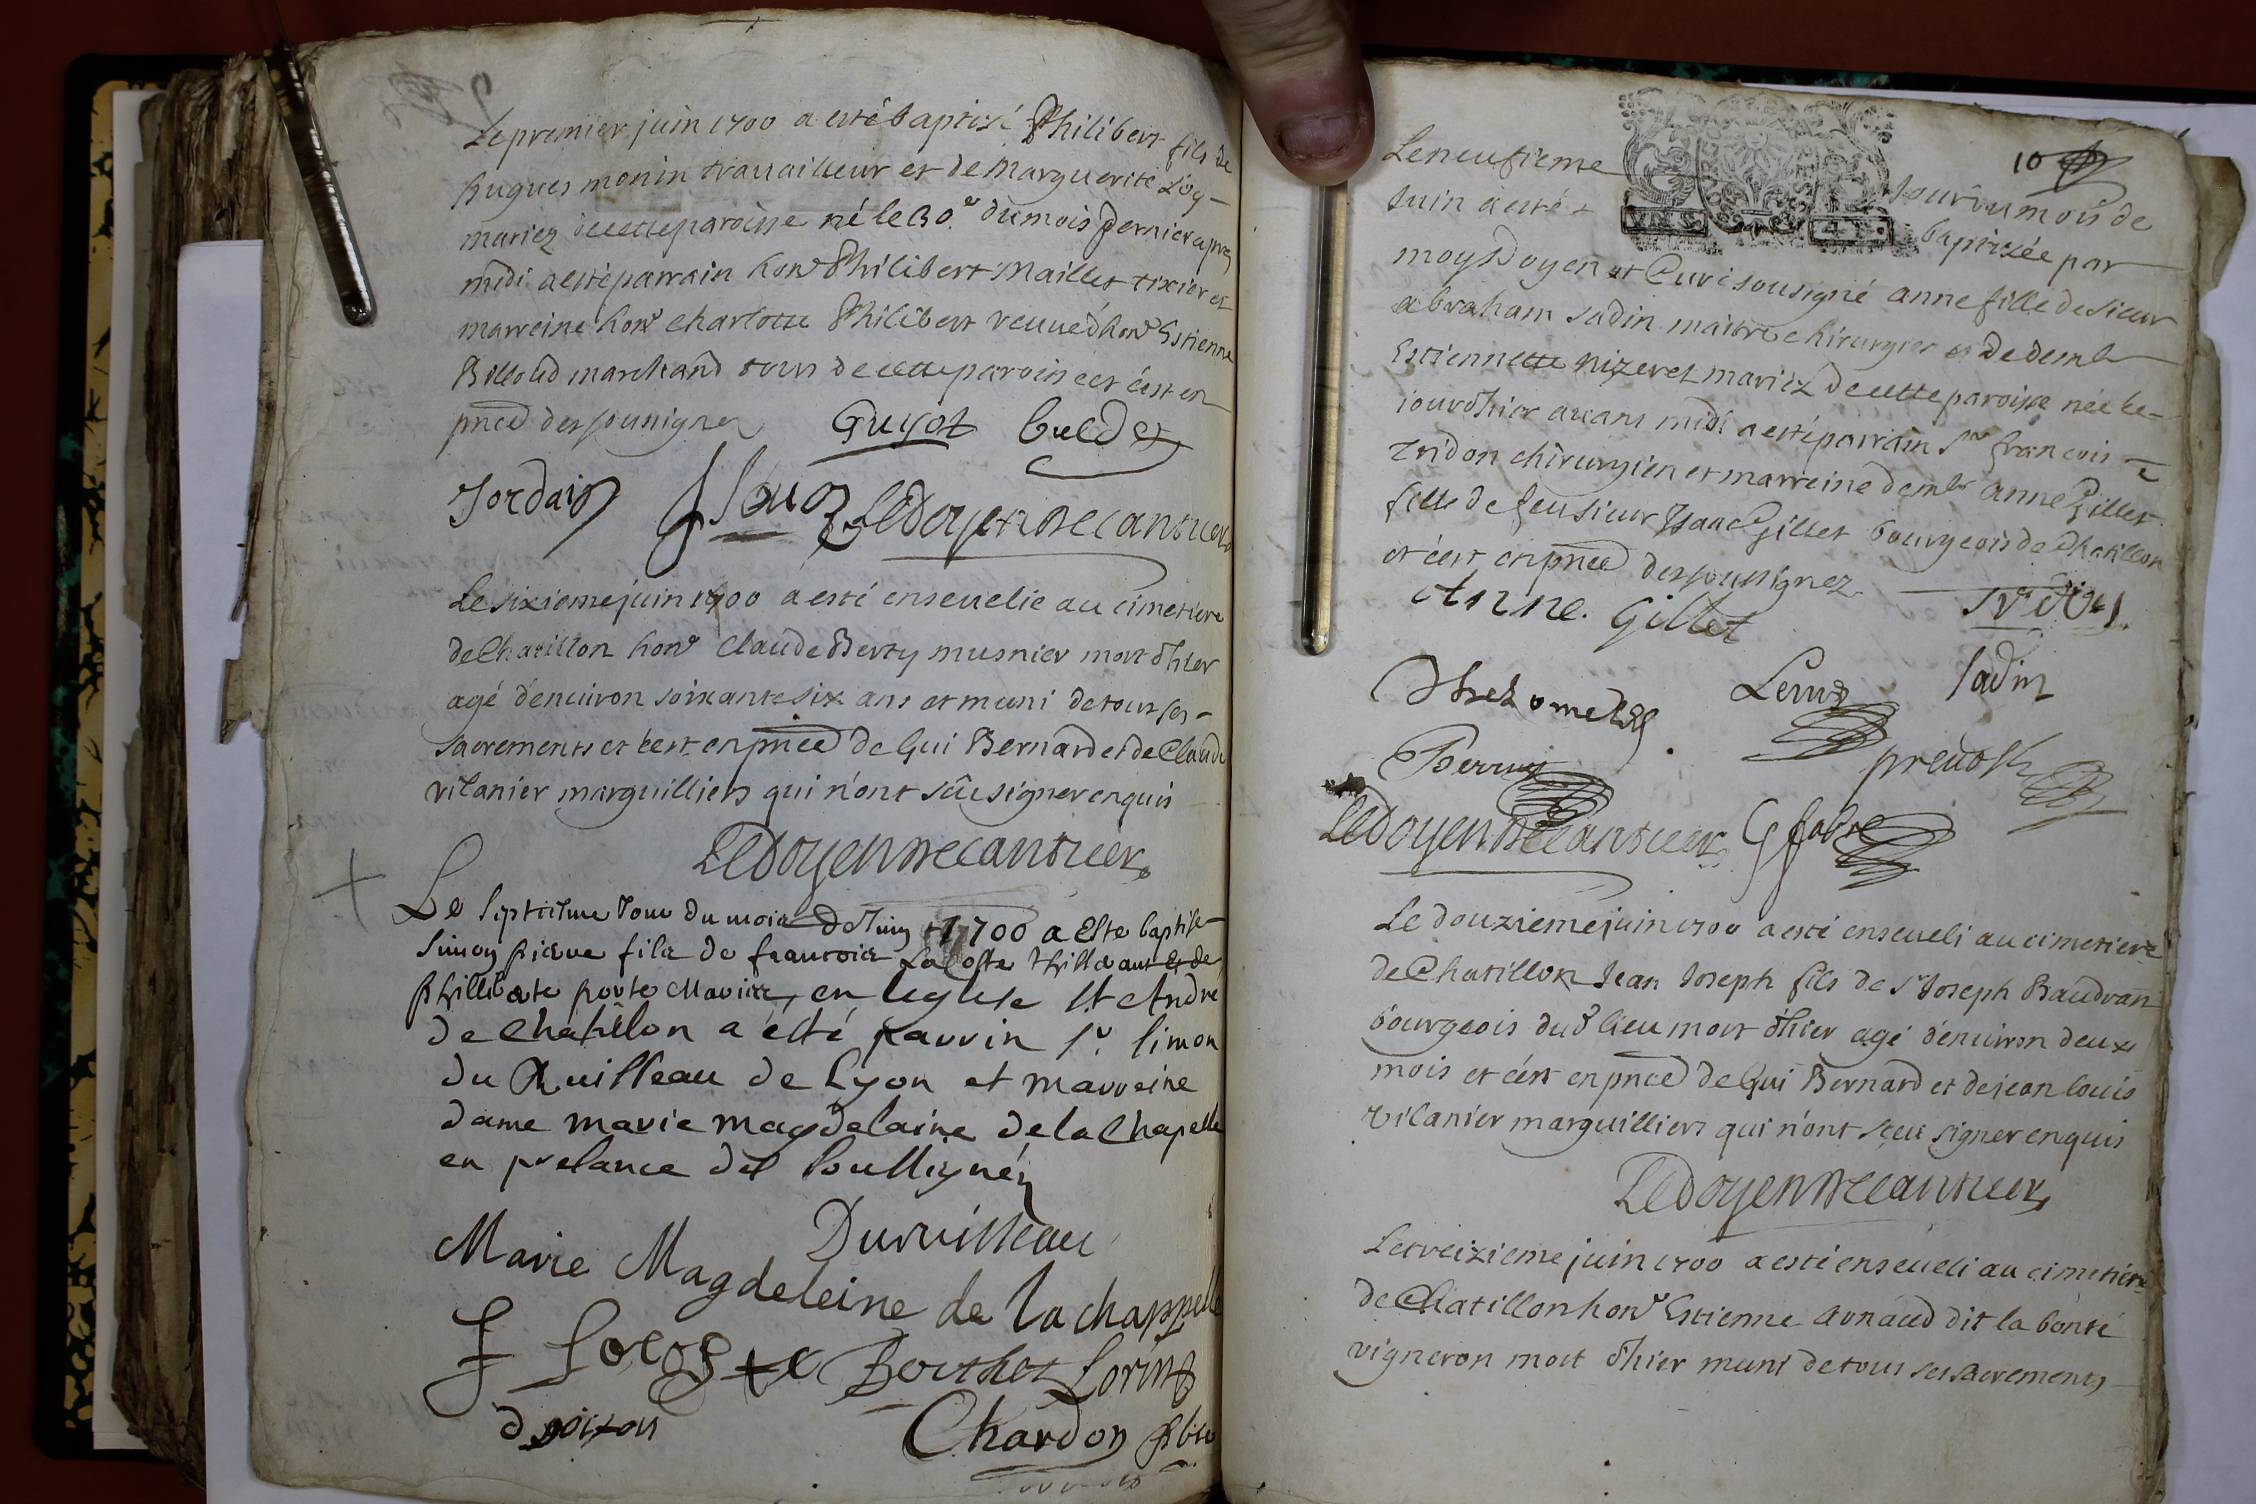 Le premier juin 1700 a esté baptizé Philibert fils de
hugues monin travailleur et de Marguerite
mariez de cette paroisse né le 30.e du mois dernier apres
midi a esté parrain hon.e Philibert Maillet tixier et
marreine hon.e Charlotte Philibert veuve d'hon.e Estienne
Billoud marchand tous de cette paroisse et c'est en
pnce des sousignez Guyot
Jordain Ledoyen Decantuers
Le sixieme juin 1700 a esté ensevelie au cimetiere
de Chatillon hon.e Claude Berty musnier mort d'hier
agé d'environ soixante six ans et muni de tous ses
sacrements et c'est en pnce de Gui Bernard et de Claude
vilanier marguilliers qui n'ont sçû signer enquis
Ledoyen Decantuers
Le septiesme Jour du mois de Juin 1700 a esté baptisé
Simon pierre fils de francois Lacoste et de
philliberte porte Maviez, en leglise St Andre
de Chatillon a esté parrin Sr. Simon
du Ruisseau de Lyon et marreine
dame marie magdelaine de la Chapelle
en presance des soussignéz
Duruisseau
Marie Magdeleine de la chappelle
f Lacoste Berthet Lorin
Chardon pbre
10
Le neufieme Jour du mois de
Juin a esté baptizée par
moy Doyen et Curé sousigné anne fille de sieur
abraham sadin maitre chirurgien et de demle
Estiennette nizeret mariez de cette paroisse née le
jour d'hier avant midi a esté parrain Sr françois
Tridon chirurgien et marreine demle anne Gillet
fille de feu sieur Isaac Gillet bourgeois de Chatillon
et c'est en pnce des soussignez
Anne. Gillet
sadin
Perruy prevost
Ledoyen Decantuers G fabre
Le douzieme juin 1700 a esté enseveli au cimetiere
de Chatillon Jean Joseph fils de Sr Joseph Baudran
bourgeois dud lieu mort d'hier agé d'environ deux
mois et c'est en pnce de Gui Bernard et de jean louis
vilanier marguilliers qui n'ont sçeu signer enquis
Ledoyen Decantuers
Le treizieme juin 1700 a esté enseveli au cimetiere
de Chatillon hon.e Estienne arnaud dit la bonté
vigneron mort d'hier muni de tous ses sacrements